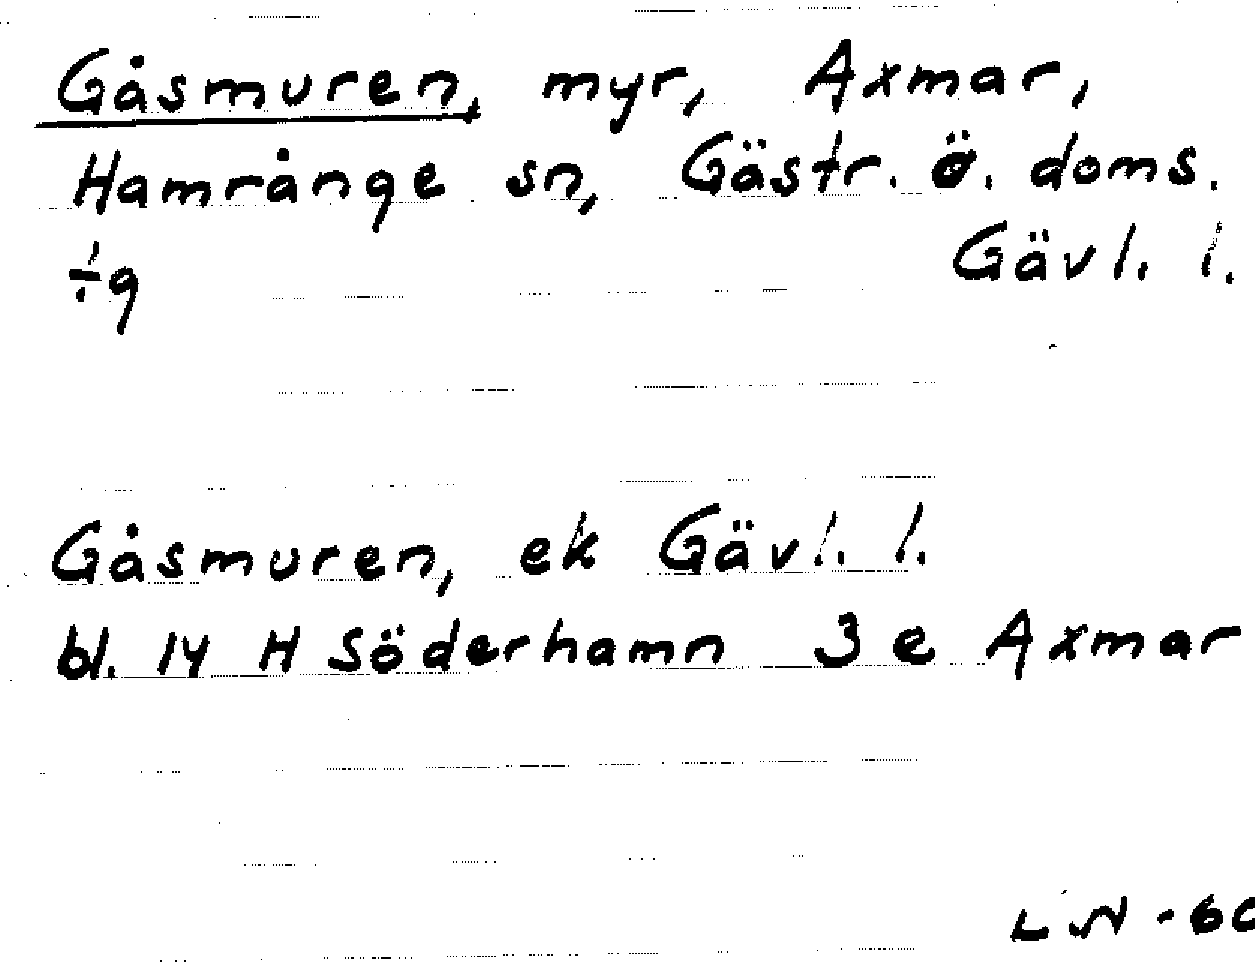 Gåsmuren, myr, Axmar,
Hamrånge sn, Gästr. ö. doms.
÷g Gävl. l.
Gåsmuren, ek Gävl. l.
bl. 14 H Söderhamn 3 e Axmar
LN -60